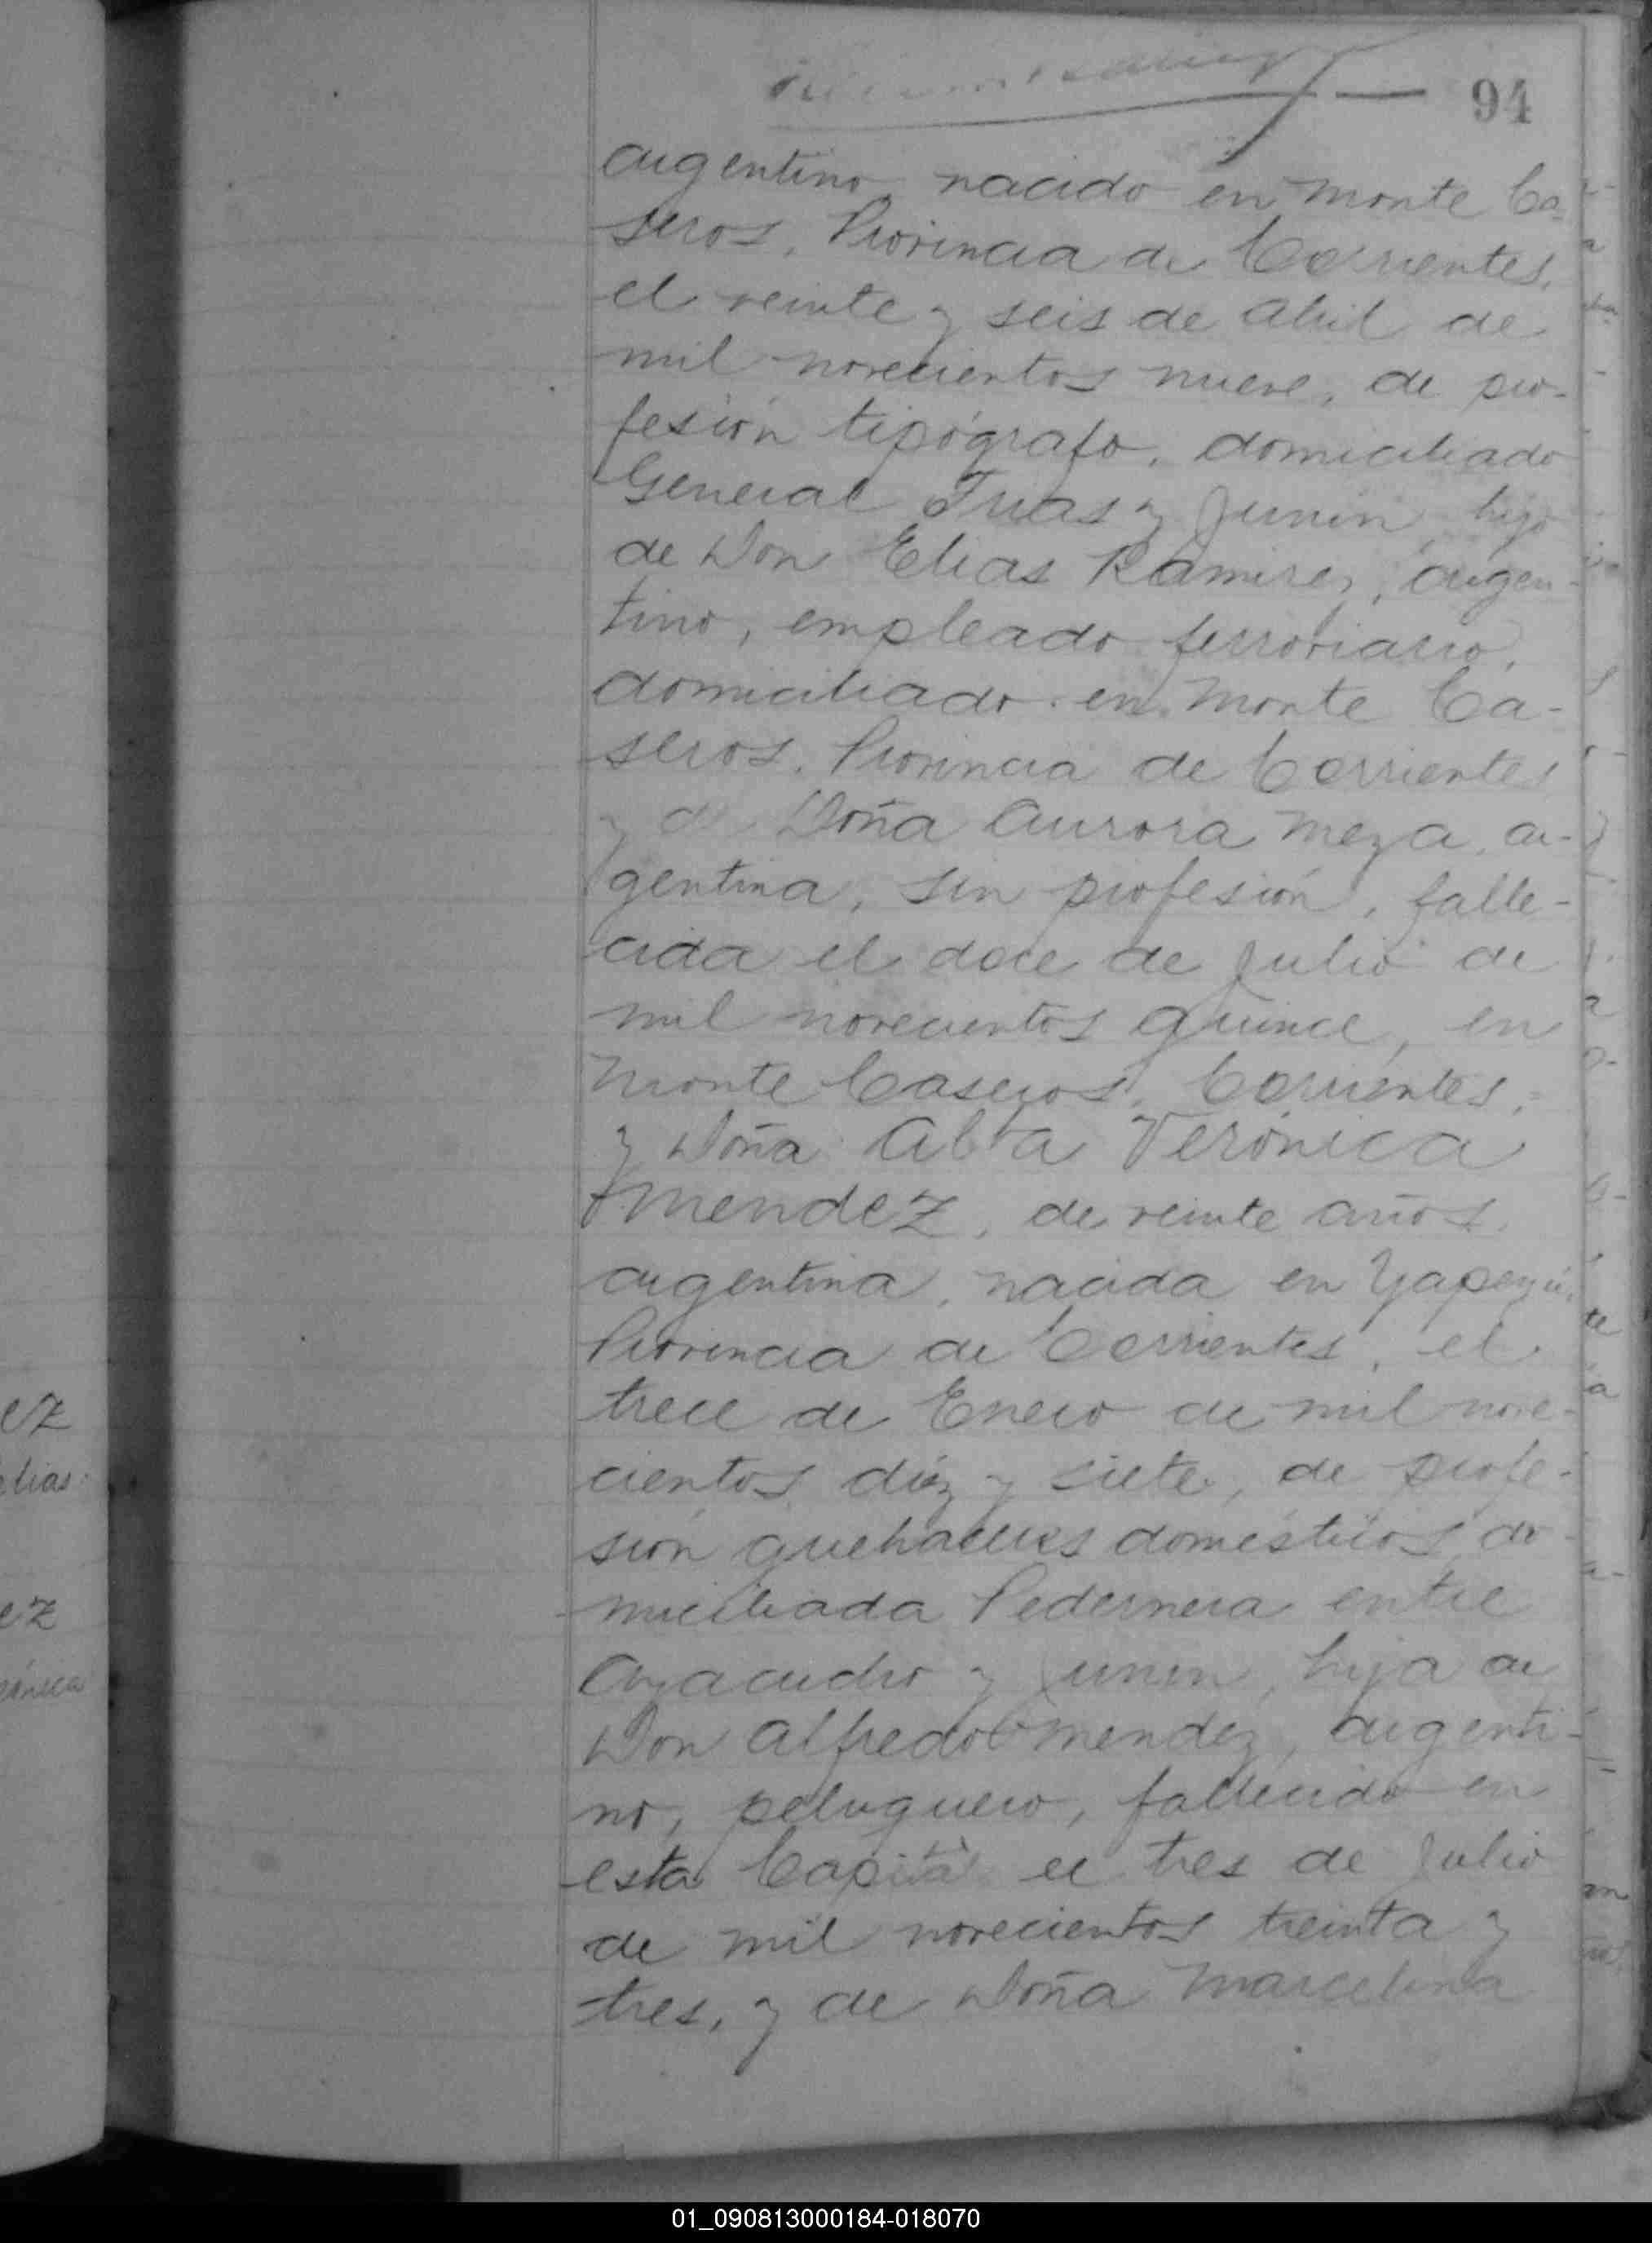 94
argentino, nacido en Monte Ca-
seros, Provincia de Corrientes,
el veinte y seis de Abril de
mil novecientos nueve, de pro-
fesión tipógrafo, domiciliado
General Frias y Junin, hijo
de Don Elias Ramirez, argen-
tino, empleado ferroviario,
domiciliado en Monte Ca-
seros, Provincia de Corrientes
y de Doña Aurora Meza, ar-
gentina, sin profesión, falle-
cida el doce de Julio de
mil novecientos quince, en
Monte Caseros, Corrientes,
y Doña Alba Verónica
Mendez, de veinte años,
argentina, nacida en Yapeyú,
Provincia de Corrientes, el
trece de Enero de mil nove-
cientos diéz y siete, de profe-
sión quehaceres domésticos, do-
miciliada Pedernera entre
Ayacucho y Junin, hija de
Don Alfredo Mendez, argenti-
no, peluquero, fallecido en
esta Capital el tres de Julio
de mil novecientos treinta y
tres, y de Doña Marcelina
ez
elias
ez
rónica
01_090813000184-018070